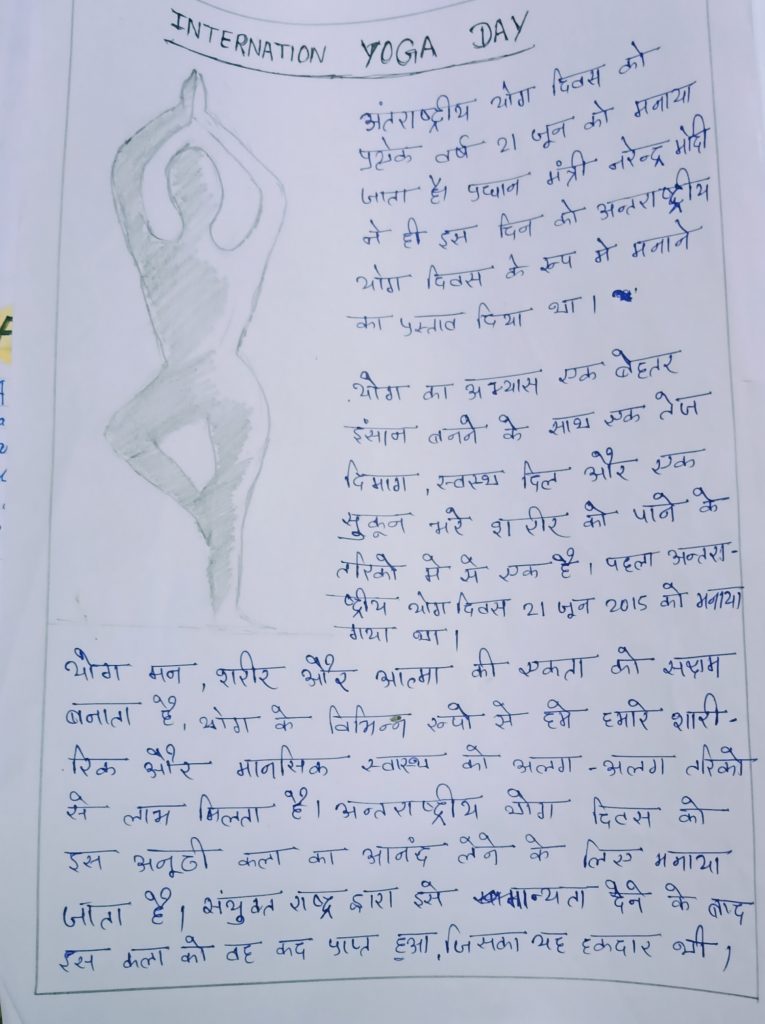 INTERNATION YOGA DAY
अंतराष्ट्रीय योग दिवस को
प्रत्येक वर्ष 21 जून को मनाया
जाता है। प्रधान मंत्री नरेन्द्र मोदी
ने ही इस दिन को अन्तराष्ट्रीय
योग दिवस के रूप मे मनाने
का प्रस्ताव दिया था।
योग का अभ्यास एक बेहतर
इंसान बनने के साथ एक तेज
दिमाग, स्वस्थ दिल और एक
सुकून भरे शरीर को पाने के
तरिको मे से एक है। पहला अन्तरा-
ष्ट्रीय योग दिवस 21 जून 2015 को मनाया
गया था।
योग मन, शरीर और आत्मा की एकता को सक्षम
बनाता है, योग के विभिन्न रूपो से हमे हमारे शारी-
रिक और मानसिक स्वास्थ को अलग-अलग तरिको
से लाभ मिलता है। अन्तराष्ट्रीय योग दिवस को
इस अनूठी कला का आनंद लेने के लिए मनाया
जाता है। संयुक्त राष्ट्र द्वारा इसे मान्यता देने के बाद
इस कला को वह कद प्राप्त हुआ, जिसका यह हकदार थी।